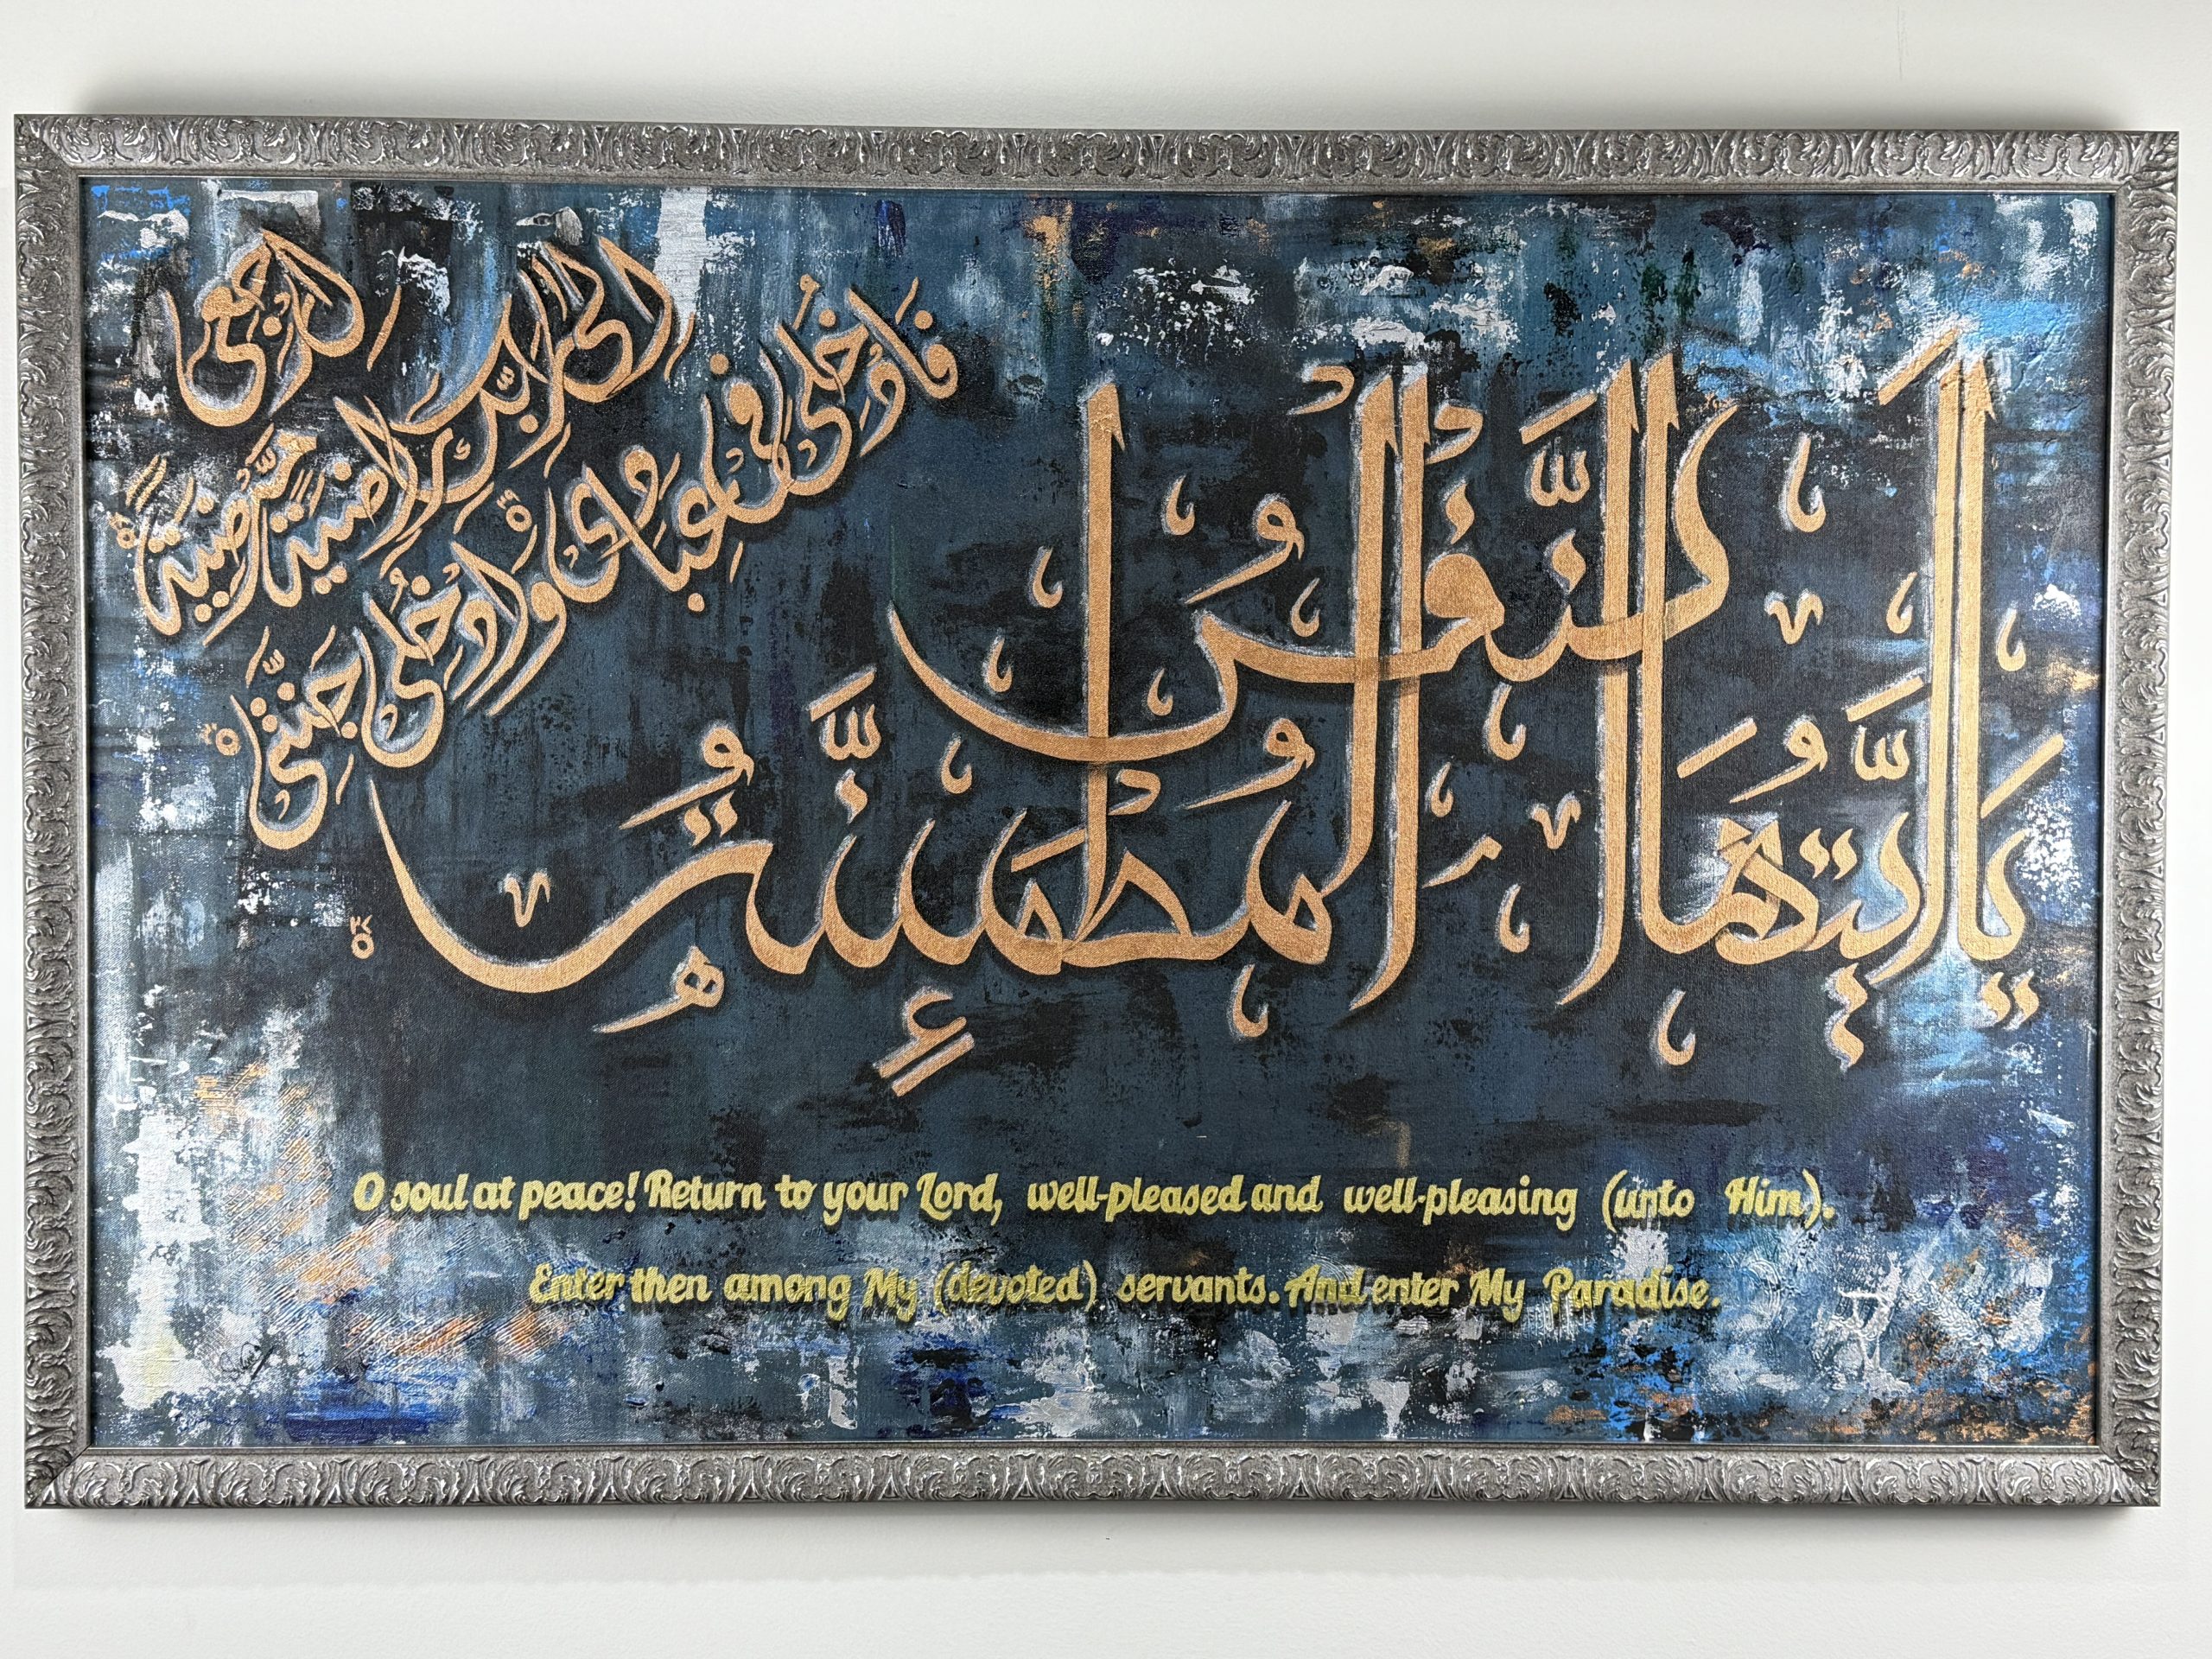 يَااَيَّتُهَا النَّفْسُ الْمُطْمَئِنَّةُ
ارْجِعِى
اِلٰى رَبِّكِ رَاضِيَةً مَّرْضِيَّةً
فَادْخُلِى فِى عِبَادِى وَادْخُلِى جَنَّتِى
O soul at peace! Return to your Lord, well-pleased and well-pleasing (unto Him).
Enter then among My (devoted) servants. And enter My Paradise.